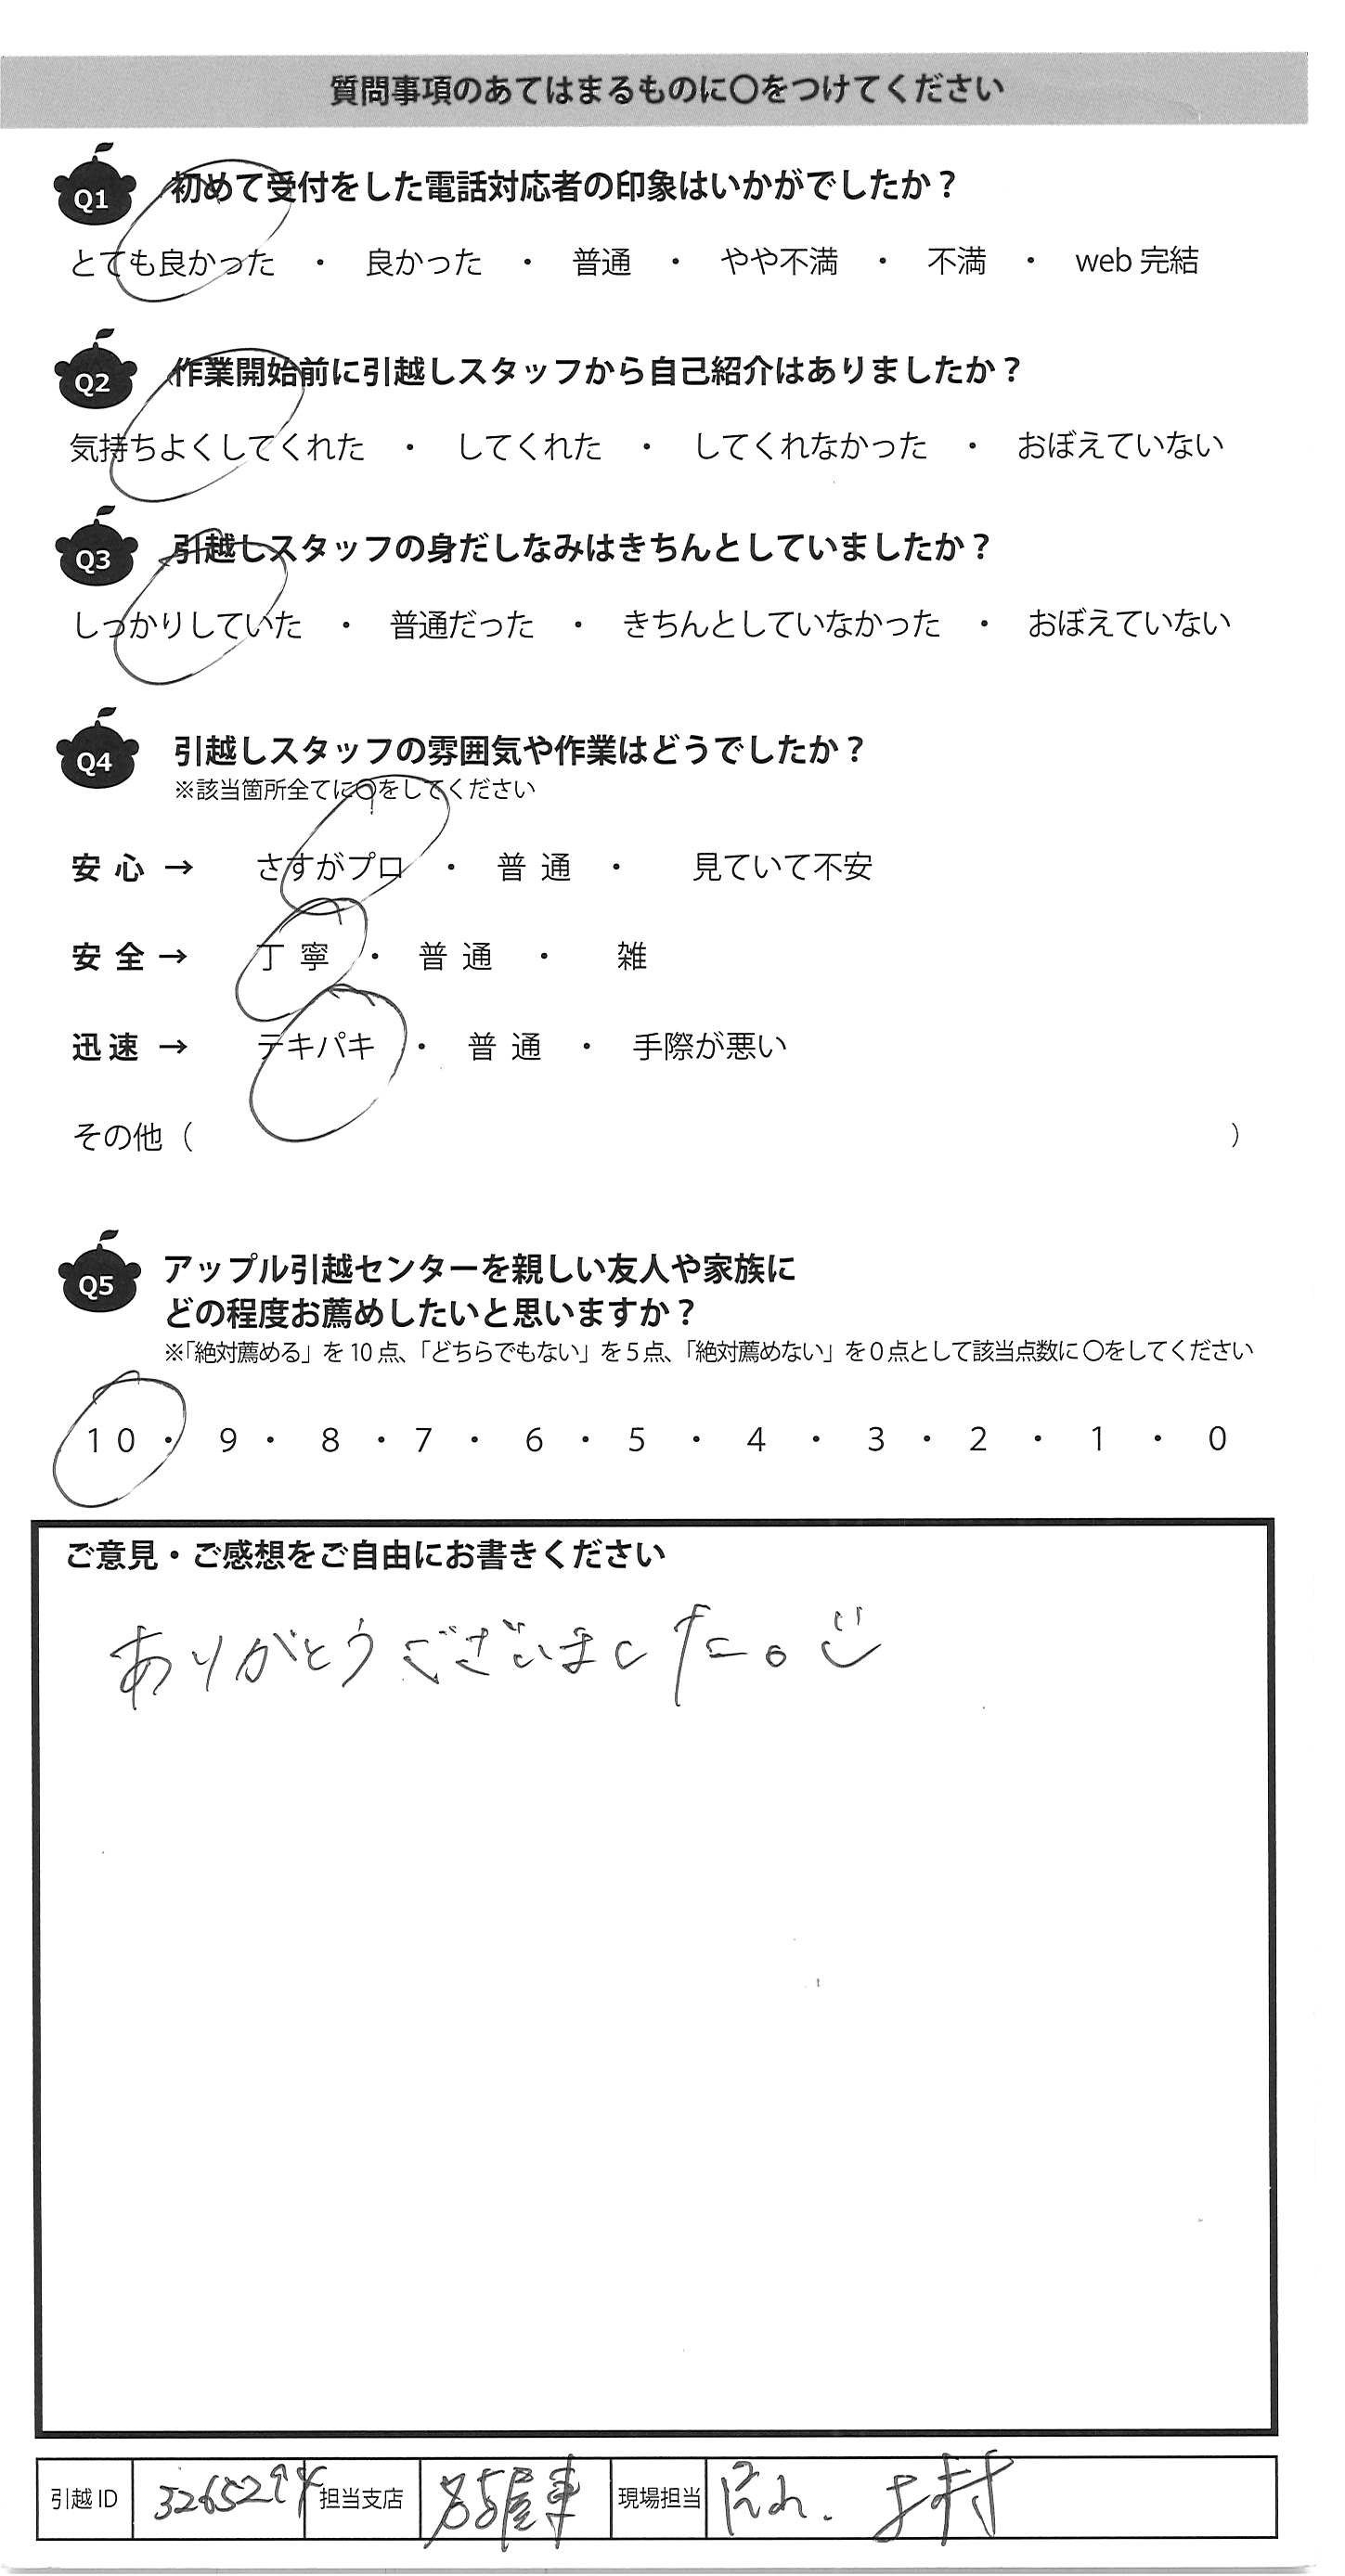 質問事項のあてはまるものに〇をつけてください
Q1 初めて受付をした電話対応者の印象はいかがでしたか？
とても良かった ・ 良かった ・ 普通 ・ やや不満 ・ 不満 ・ web 完結
Q2 作業開始前に引越しスタッフから自己紹介はありましたか？
気持ちよくしてくれた ・ してくれた ・ してくれなかった ・ おぼえていない
Q3 引越しスタッフの身だしなみはきちんとしていましたか？
しっかりしていた ・ 普通だった ・ きちんとしていなかった ・ おぼえていない
Q4 引越しスタッフの雰囲気や作業はどうでしたか？
※該当箇所全てに〇をしてください
安心 → さすがプロ ・ 普通 ・ 見ていて不安
安全 → 丁寧 ・ 普通 ・ 雑
迅速 → テキパキ ・ 普通 ・ 手際が悪い
その他（ ）
Q5 アップル引越センターを親しい友人や家族に
どの程度お薦めしたいと思いますか？
※「絶対薦める」を10点、「どちらでもない」を5点、「絶対薦めない」を0点として該当点数に〇をしてください
10 ・ 9 ・ 8 ・ 7 ・ 6 ・ 5 ・ 4 ・ 3 ・ 2 ・ 1 ・ 0
ご意見・ご感想をご自由にお書きください
ありがとうございました。
引越ID 担当支店 名古屋東 現場担当